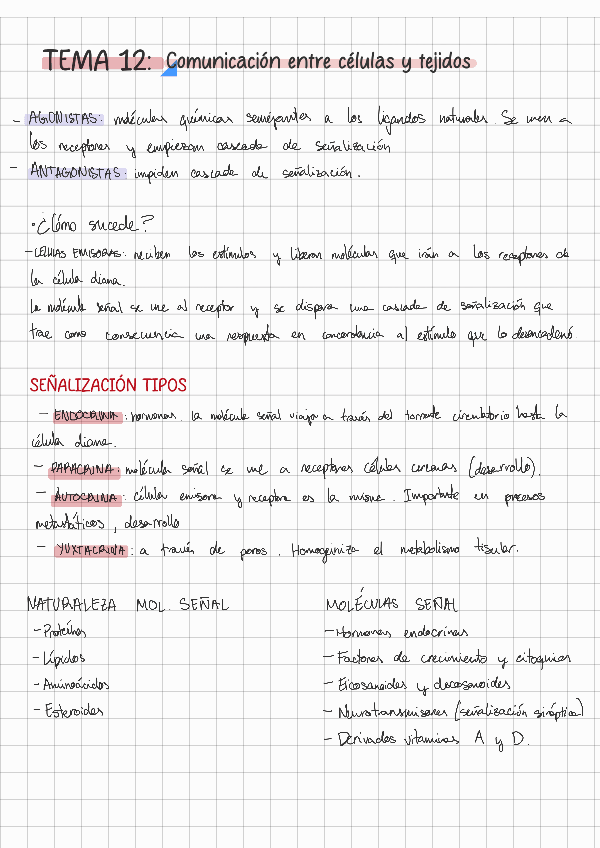 TEMA 12: Comunicación entre células y tejidos
- AGONISTAS: moléculas químicas semejantes a los ligandos naturales. Se unen a
los receptores y empiezan cascada de señalización
- ANTAGONISTAS: impiden cascada de señalización.
· ¿Cómo sucede?
- CÉLULAS EMISORAS: reciben los estímulos y liberan moléculas que irán a los receptores de
la célula diana.
La molécula señal se une al receptor y se dispara una cascada de señalización que
trae como consecuencia una respuesta en concordancia al estímulo que lo desencadenó
SEÑALIZACIÓN TIPOS
- ENDOCRINA: hormonas. la molécula señal viaja a través del torrente circulatorio hasta la
célula diana.
- PARACRINA: molécula señal se une a receptores células cercanas (desarrollo).
- AUTOCRINA: célula emisora y receptora es la misma. Importante en procesos
metastáticos, desarrollo
- YUXTACRINA: a través de poros. Homogeiniza el metabolismo tisular.
NATURALEZA MOL. SEÑAL
- Proteínas
- Lípidos
- Aminoácidos
- Esteroides
MOLÉCULAS SEÑAL
- Hormonas endocrinas
- Factores de crecimiento y citoquinas
- Eicosanoides y docosanoides
- Neurotransmisores (señalización sináptica)
- Derivados vitaminas A y D.